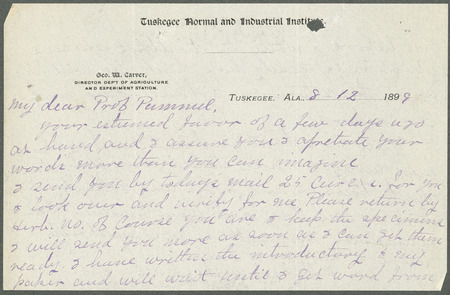 Tuskegee Normal and Industrial Institute.
Geo. W. Carver,
DIRECTOR DEP'T OF AGRICULTURE
AND EXPERIMENT STATION.
TUSKEGEE, ALA., 8-12 1899
My dear Prof Pammel,
Your estumed favor of a few days ago
at hand and I assure you I apretiate your
words more than you can imagine
I send you by today's mail 25 for you
to look over and verify for me, Please return by
Herb. no. of course you are to keep the specimens
I will send you more as soon as I can get them
ready. I have written the introductory to my
paper and will wait until I get word from